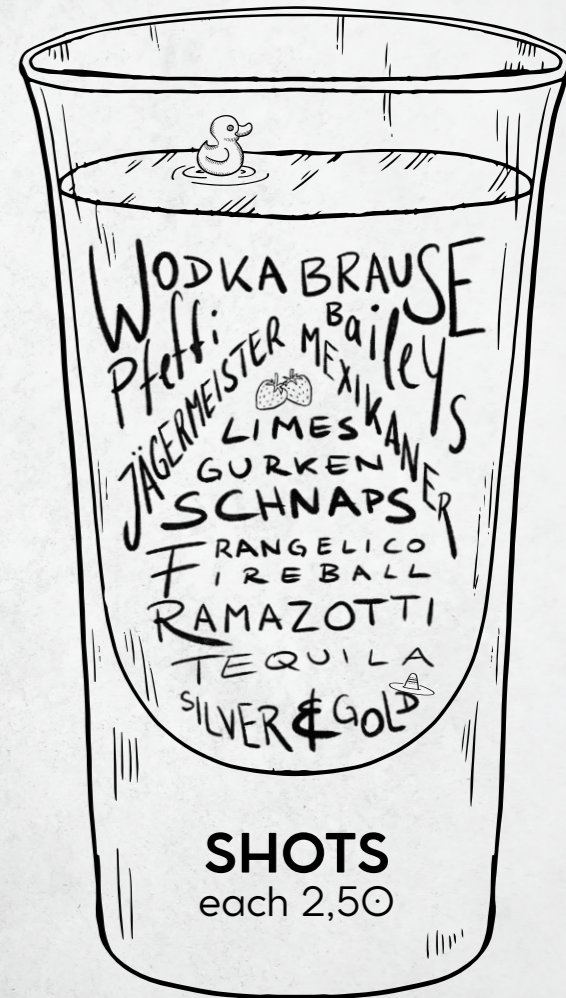 WODKA BRAUSE
Pfeffi
Baileys
JÄGERMEISTER
MEXIKANER
LIMES
GURKEN
SCHNAPS
FRANGELICO
FIREBALL
RAMAZOTTI
TEQUILA
SILVER & GOLD
SHOTS
each 2,50